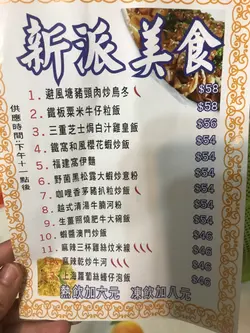 新派美食
供應時間:下午十一點後
1. 避風塘豬頭肉炒烏冬 $58
2. 鐵板粟米牛仔粒飯 $58
3. 三重芝士焗白汁雞皇飯 $56
4. 鐵窩和風櫻花蝦炒飯 $54
5. 福建窩伊麵 $54
6. 野菌黑松露大蝦炒意粉 $54
7. 咖喱香茅豬扒粒炒飯 $54
8. 越式清湯牛腩河粉 $54
9. 生薑照燒肥牛大碗飯 $54
10. 蝦醬澳門炒飯 $46
11. 麻辣三杯雞絲炆米線 $46
麻辣乾炒牛河 $46
上海羅勒絲蝦仔泡飯 $46
熱飲加六元 凍飲加八元